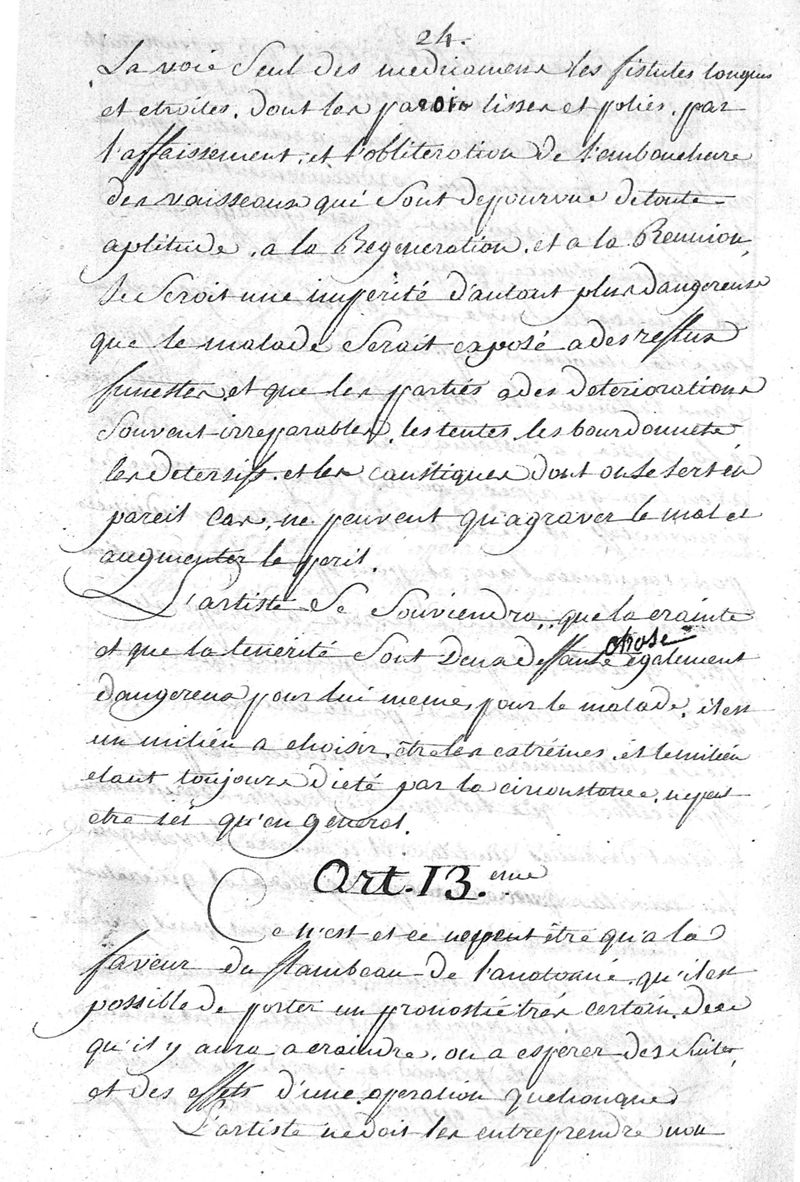 24.
La voie Seul des medicamens les fistules longues
et etroites, dont les parois lisses et polies, par
l'affaissement, et l'obliteration de l'embouchure
des vaisseaux qui Sont depourvue de toute
aptitude, a la Regeneration, et a la Reunion,
Se Seroit une imperité d'autant plus dangereuse
que le malade Serait exposé a des reflus
funestes, et que les parties a des deteriorations
Souvent irreparables, les tentes, les bourdonnets
les detersifs, et les caustiques dont on se sert en
pareil cas, ne peuvent qu'agraver le mal et
augmenter le peril.
L'artiste Se Souviendra, que la crainte
et que la temérité Sont Deux chose également
dangereux pour lui meme, pour le malade, il est
un milieu a choisir, être les extrémes, et le milieu
etant toujours dicté par la circonstance, ne peut
etre ici qu'en general.
Art. 13.eme
Ce n'est et ce ne peut être qu'a la
faveur du flambeau de l'anatomie, qu'il est
possible de porter un pronostic trés certain, de ce
qu'il y aura a craindre, ou a espérer des Suites,
et des effets d'une operation quelconque
L'artiste ne doit les entreprendre non